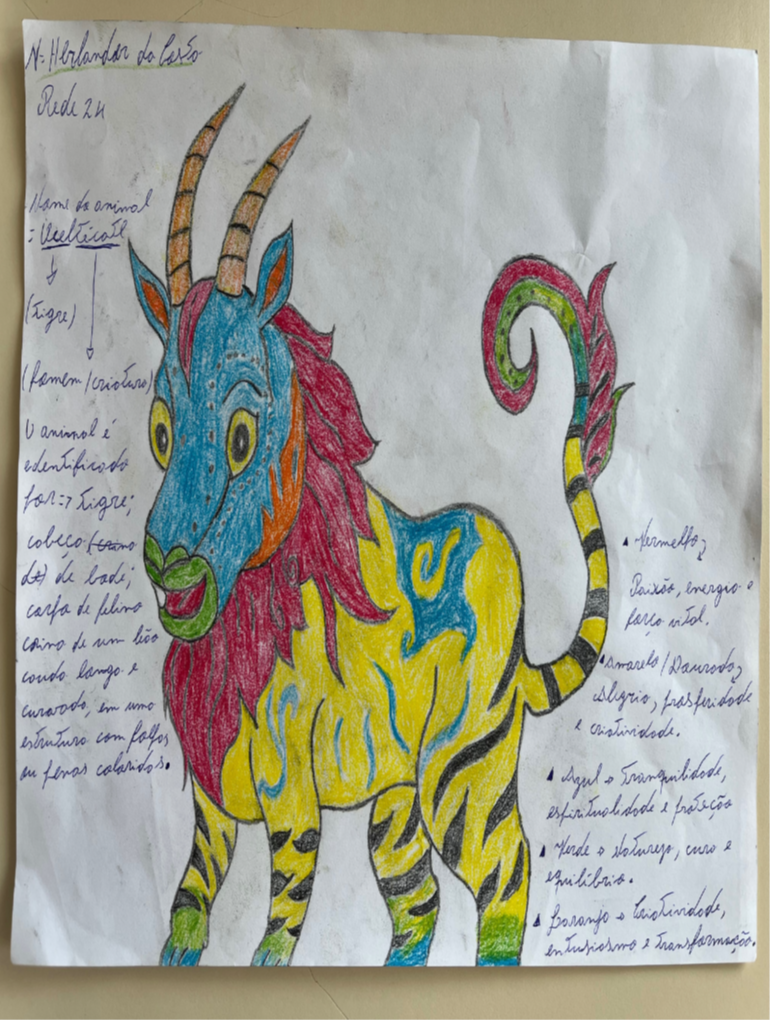 N: Herlander do Casão
Rede 24
Nome do animal
: Ucelticoatl
(tigre)
(homem/criatura)
O animal é
edentificado
por => tigre;
cabeça
de bode;
corpo de felino
crina de um leão
cauda longa e
curvada, em uma
estrutura com folhas
ou penas coloridas.
Vermelho
Paixão, energia e
força vital.
Amarelo/Dourado
Alegria, prosperidade
e criatividade.
Azul Tranquilidade,
espiritualidade e proteção
Verde Natureza, cura e
equilíbrio.
Laranja Criatividade,
entusiasmo e transformação.